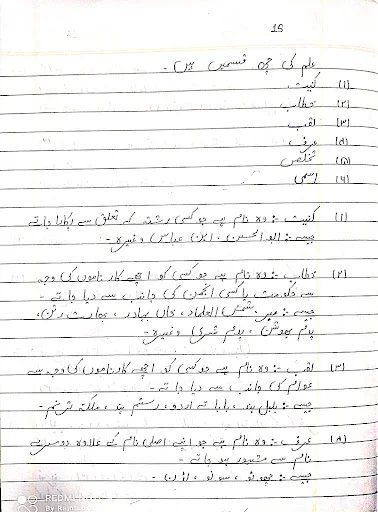 15
علم کی چھ قسمیں ہیں ۔
(۱) کنیت
(۲) خطاب
(۳) لقب
(۴) عرف
(۵) تخلص
(۶) اسمی
(۱) کنیت :۔ وہ نام ہے جو کسی رشتہ کے تعلق سے پکارا جاتے
جیسے :۔ ابو الحسن ، ابن عباس وغیرہ ۔
(۲) خطاب :۔ وہ نام ہے جو کسی کو اچھے کارناموں کی وجہ
سے حکومت یا کسی انجمن کی جانب سے دیا جاتے ۔
جیسے :۔ شمس العلماء ، خاں بہادر ، بھارت رتن ،
پدم بھوشن ، پدم شری وغیرہ ۔
(۳) لقب :۔ وہ نام ہے جو کسی کو اچھے کارناموں کی وجہ سے
عوام کی جانب سے دیا جاتے ۔
جیسے :۔ بلبل ہند ، بابائے اردو ، رستم ہند ، ملکہ ترنم ۔
(۴) عرف :۔ وہ نام ہے جو اپنے اصلی نام کے علاوہ دوسرے
نام سے مشہور ہو جاتے ۔
جیسے :۔ چھوٹو ، سونو ،
REDMI